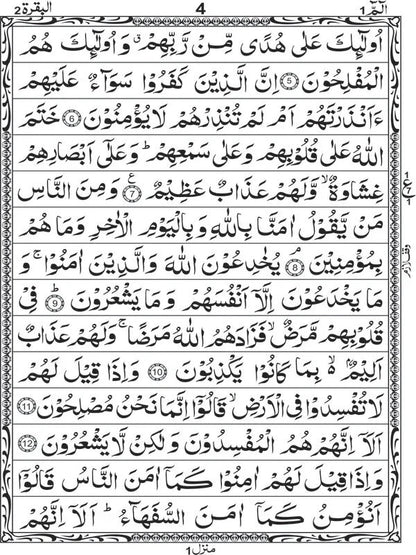 الٓمّٓ ١ 4 البقرة ٢
اُولٰٓئِكَ عَلٰی هُدًی مِّنْ رَّبِّهِمْ ۙ وَ اُولٰٓئِكَ هُمُ
الْمُفْلِحُوْنَ ⑤ اِنَّ الَّذِیْنَ كَفَرُوْا سَوَآءٌ عَلَیْهِمْ
ءَاَنْذَرْتَهُمْ اَمْ لَمْ تُنْذِرْهُمْ لَا یُؤْمِنُوْنَ ⑥ خَتَمَ
اللهُ عَلٰی قُلُوْبِهِمْ وَعَلٰی سَمْعِهِمْ ؕ وَعَلٰۤی اَبْصَارِهِمْ
غِشَاوَةٌ ؗ وَّلَهُمْ عَذَابٌ عَظِیْمٌ ⑦ وَمِنَ النَّاسِ
مَنْ یَّقُوْلُ اٰمَنَّا بِاللهِ وَ بِالْیَوْمِ الْاٰخِرِ وَمَا هُمْ
بِمُؤْمِنِیْنَ ⑧ یُخٰدِعُوْنَ اللهَ وَالَّذِیْنَ اٰمَنُوْا ۚ وَ
مَا یَخْدَعُوْنَ اِلَّاۤ اَنْفُسَهُمْ وَمَا یَشْعُرُوْنَ ⑨ ؕ فِیْ
قُلُوْبِهِمْ مَّرَضٌ ۙ فَزَادَهُمُ اللهُ مَرَضًا ۚ وَلَهُمْ عَذَابٌ
اَلِیْمٌۢ ۙ۬ بِمَا كَانُوْا یَكْذِبُوْنَ ⑩ وَاِذَا قِیْلَ لَهُمْ
لَا تُفْسِدُوْا فِی الْاَرْضِ ۙ قَالُوْۤا اِنَّمَا نَحْنُ مُصْلِحُوْنَ ⑪
اَلَاۤ اِنَّهُمْ هُمُ الْمُفْسِدُوْنَ وَلٰكِنْ لَّا یَشْعُرُوْنَ ⑫
وَاِذَا قِیْلَ لَهُمْ اٰمِنُوْا كَمَاۤ اٰمَنَ النَّاسُ قَالُوْۤا
اَنُؤْمِنُ كَمَاۤ اٰمَنَ السُّفَهَآءُ ؕ اَلَاۤ اِنَّهُمْ
منزل ١